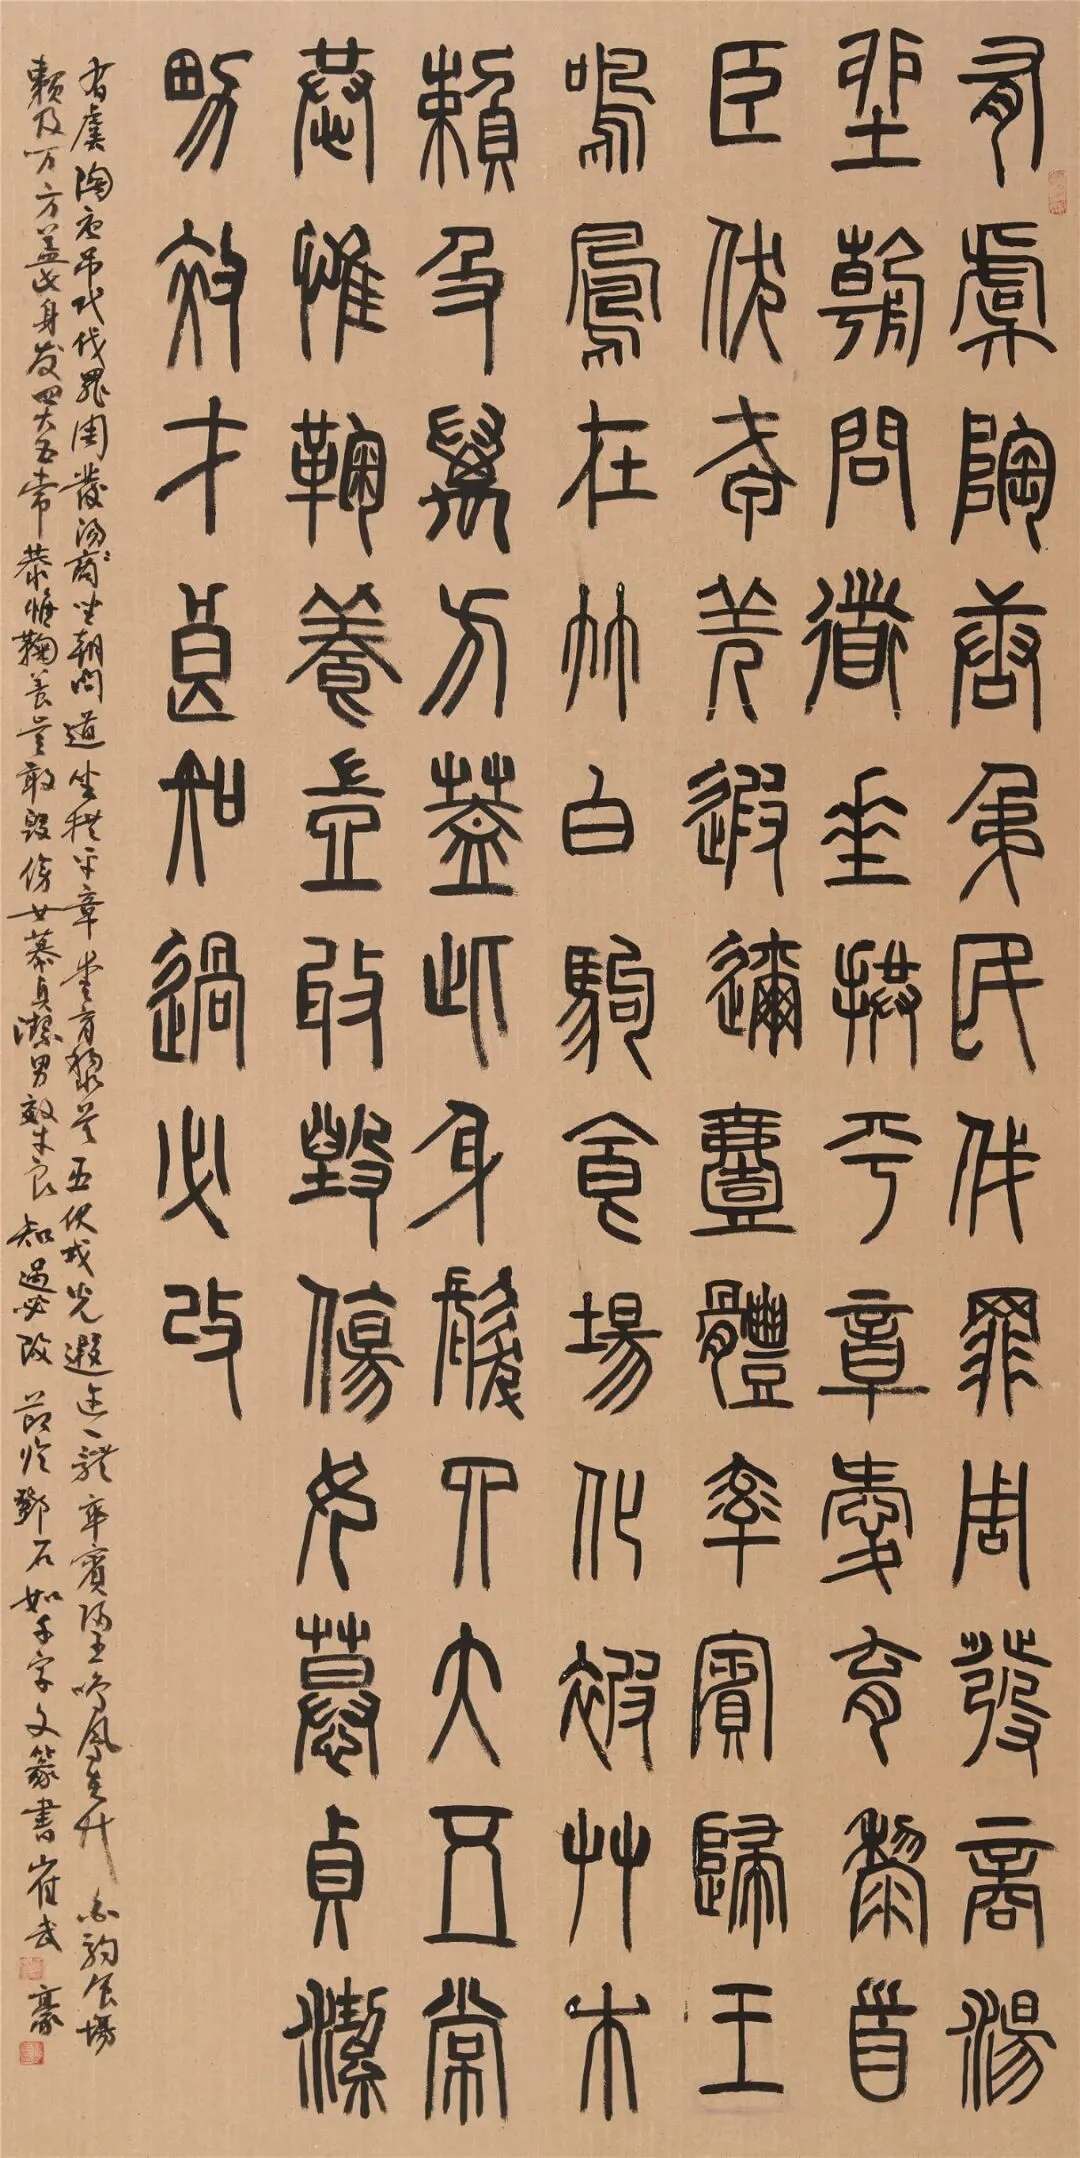 有虞陶唐弔民伐罪周發商湯
坐朝問道垂拱平章愛育黎首
臣伏戎羌遐邇壹體率賓歸王
鳴鳳在竹白駒食場化被艸木
賴及萬方蓋此身髮四大五常
恭惟鞠養豈敢毀傷女慕貞潔
男效才良知過必改
有虞陶唐弔民伐罪周發湯商坐朝問道坐拱平章愛育黎首臣伏戎羌遐迩一體率賓歸王鳴鳳在竹白駒食場
賴及万方蓋此身发四大五常恭惟鞠養豈敢毀傷女慕貞潔男效才良知過必改節臨鄧石如千字文篆書崔武豪